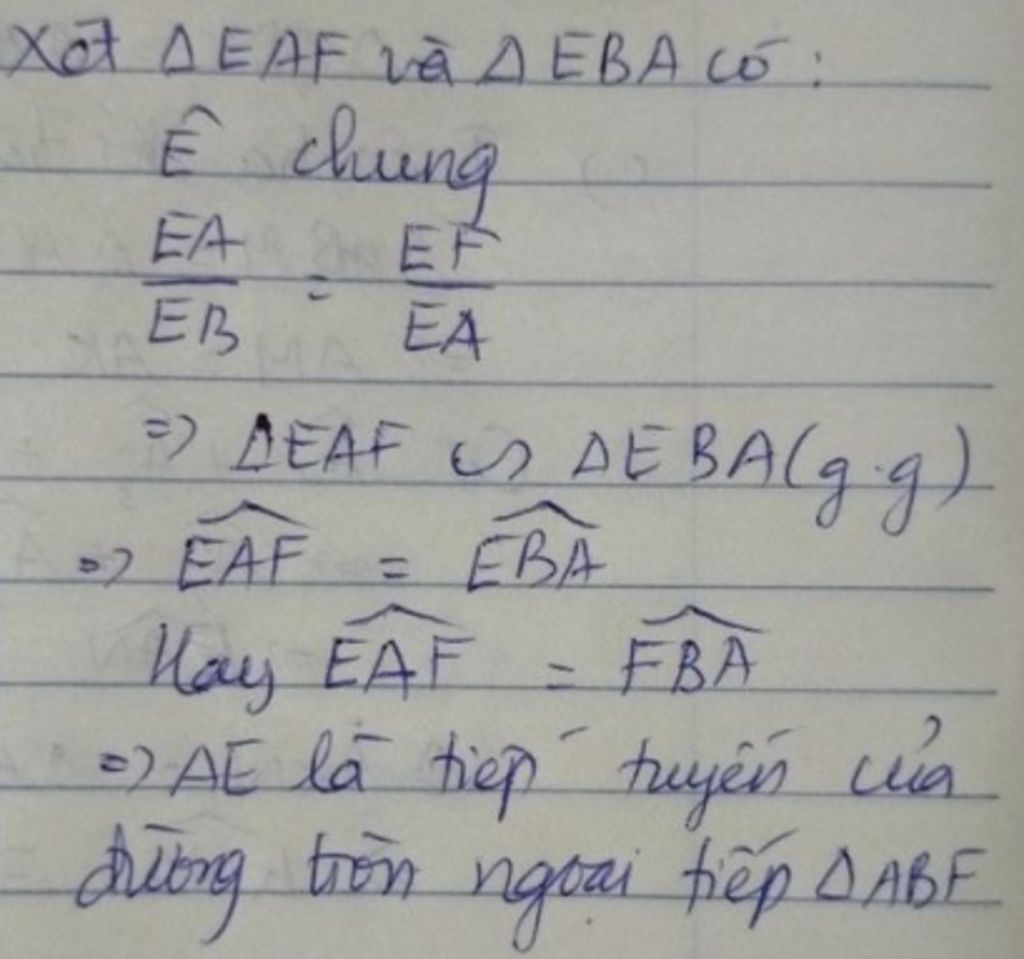 Xét ΔEAF và ΔEBA có:
Ê chung
EA/EB = EF/EA
=> ΔEAF ∽ ΔEBA (g.g)
=> \widehat{EAF} = \widehat{EBA}
Hay \widehat{EAF} = \widehat{FBA}
=> AE là tiếp tuyến của
đường tròn ngoại tiếp ΔABF